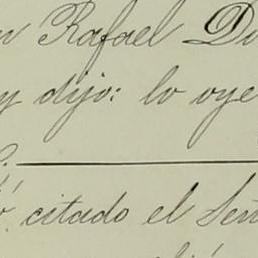 n Rafael D
y dijo: lo oye
citado el Señ